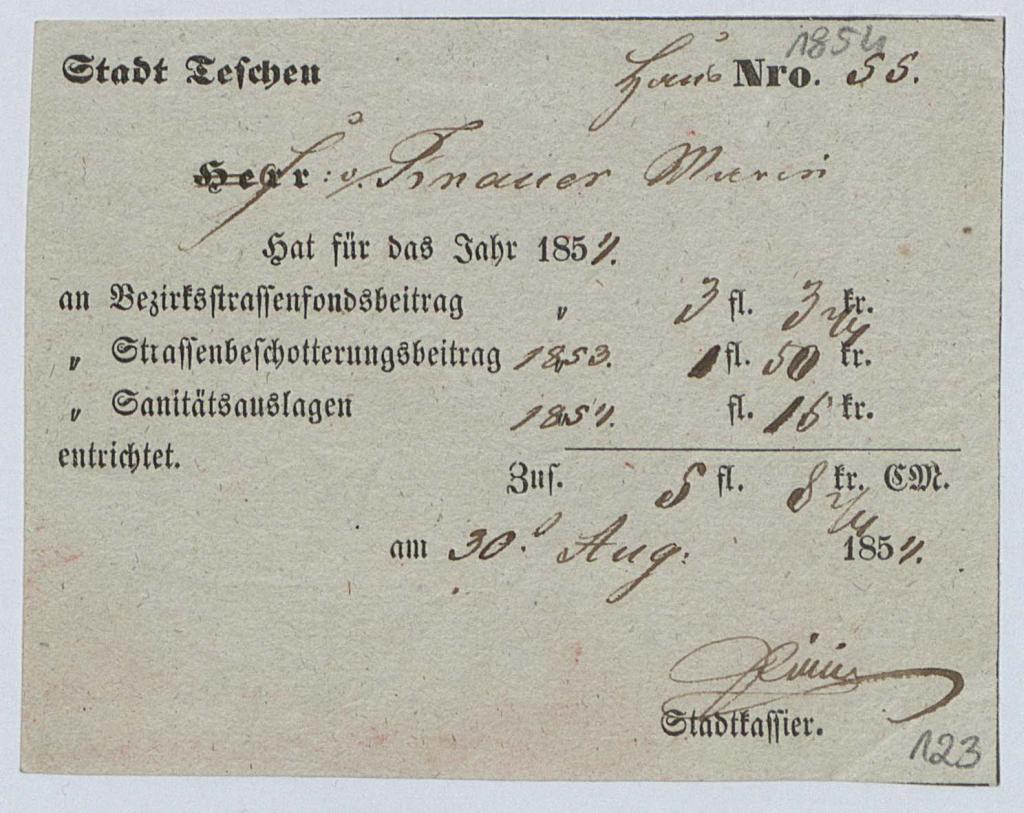 1854
Stadt Teschen Haus Nro. 55.
Herr: v. Trnauer Marin
Hat für das Jahr 1854.
an Bezirksstrassenfondsbeitrag „ 3 fl. 3 2/4 kr.
„ Strassenbeschotterungsbeitrag 1853. 1 fl. 50 kr.
„ Sanitätsauslagen 1854. fl. 15 kr.
entrichtet.
Zus. 5 fl. 8 2/4 kr. CM.
am 30. Aug: 1854.
Stadtkassier.
123